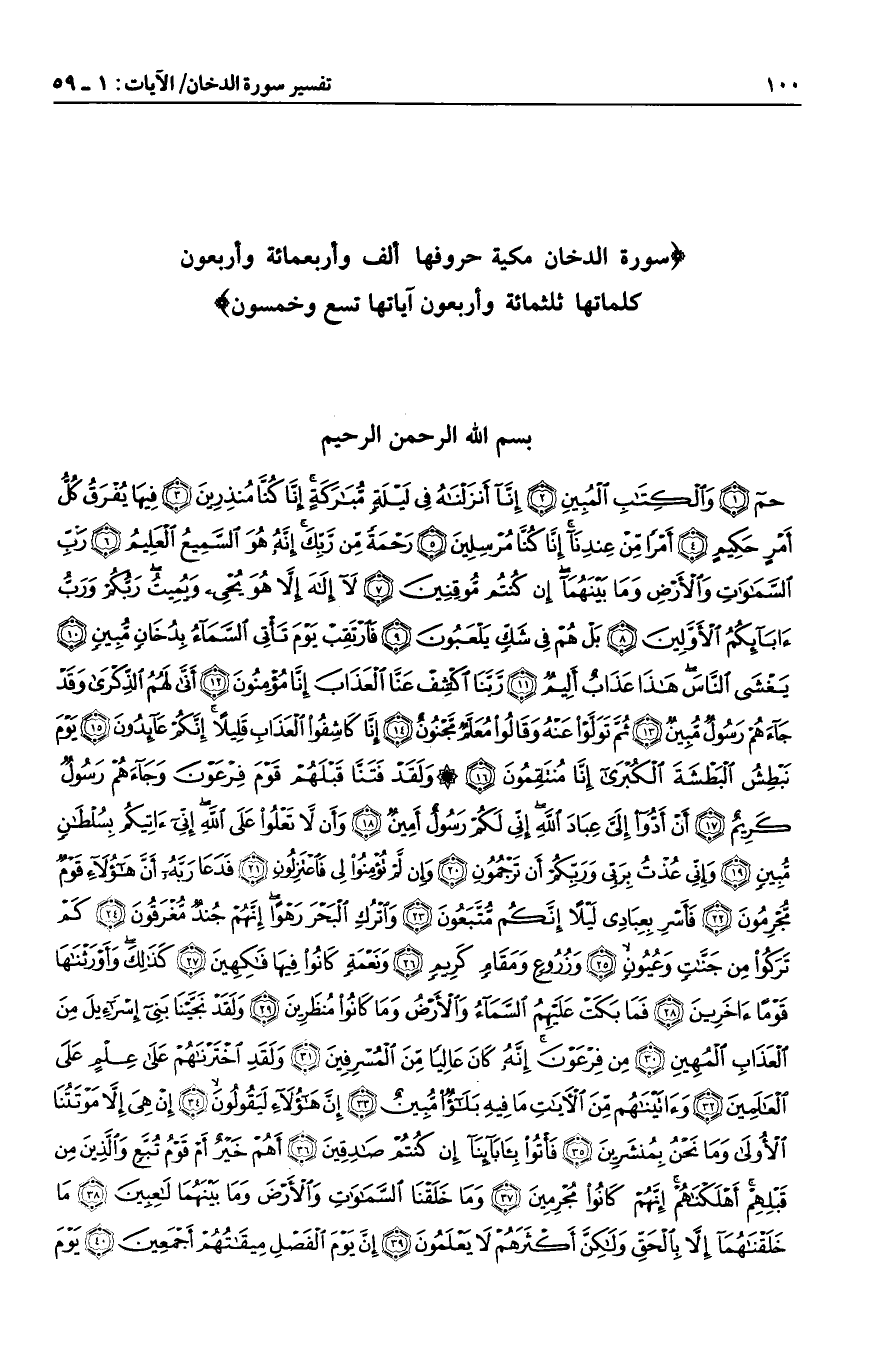 ١٠٠ تفسير سورة الدخان/ الآيات: ١ ـ ٥٩
﴿سورة الدخان مكية حروفها ألف وأربعمائة وأربعون
كلماتها ثلثمائة وأربعون آياتها تسع وخمسون﴾
بسم الله الرحمن الرحيم
حمٓ ﴿١﴾ وَٱلْكِتَٰبِ ٱلْمُبِينِ ﴿٢﴾ إِنَّآ أَنزَلْنَٰهُ فِى لَيْلَةٍ مُّبَٰرَكَةٍ ۚ إِنَّا كُنَّا مُنذِرِينَ ﴿٣﴾ فِيهَا يُفْرَقُ كُلُّ
أَمْرٍ حَكِيمٍ ﴿٤﴾ أَمْرًا مِّنْ عِندِنَآ ۚ إِنَّا كُنَّا مُرْسِلِينَ ﴿٥﴾ رَحْمَةً مِّن رَّبِّكَ ۚ إِنَّهُۥ هُوَ ٱلسَّمِيعُ ٱلْعَلِيمُ ﴿٦﴾ رَبِّ
ٱلسَّمَٰوَٰتِ وَٱلْأَرْضِ وَمَا بَيْنَهُمَآ ۖ إِن كُنتُم مُّوقِنِينَ ﴿٧﴾ لَآ إِلَٰهَ إِلَّا هُوَ يُحْىِۦ وَيُمِيتُ ۖ رَبُّكُمْ وَرَبُّ
ءَابَآئِكُمُ ٱلْأَوَّلِينَ ﴿٨﴾ بَلْ هُمْ فِى شَكٍّ يَلْعَبُونَ ﴿٩﴾ فَٱرْتَقِبْ يَوْمَ تَأْتِى ٱلسَّمَآءُ بِدُخَانٍ مُّبِينٍ ﴿١٠﴾
يَغْشَى ٱلنَّاسَ ۖ هَٰذَا عَذَابٌ أَلِيمٌ ﴿١١﴾ رَّبَّنَا ٱكْشِفْ عَنَّا ٱلْعَذَابَ إِنَّا مُؤْمِنُونَ ﴿١٢﴾ أَنَّىٰ لَهُمُ ٱلذِّكْرَىٰ وَقَدْ
جَآءَهُمْ رَسُولٌ مُّبِينٌ ﴿١٣﴾ ثُمَّ تَوَلَّوْا۟ عَنْهُ وَقَالُوا۟ مُعَلَّمٌ مَّجْنُونٌ ﴿١٤﴾ إِنَّا كَاشِفُوا۟ ٱلْعَذَابِ قَلِيلًا ۚ إِنَّكُمْ عَآئِدُونَ ﴿١٥﴾ يَوْمَ
نَبْطِشُ ٱلْبَطْشَةَ ٱلْكُبْرَىٰٓ إِنَّا مُنتَقِمُونَ ﴿١٦﴾ ۞ وَلَقَدْ فَتَنَّا قَبْلَهُمْ قَوْمَ فِرْعَوْنَ وَجَآءَهُمْ رَسُولٌ
كَرِيمٌ ﴿١٧﴾ أَنْ أَدُّوٓا۟ إِلَىَّ عِبَادَ ٱللَّهِ ۖ إِنِّى لَكُمْ رَسُولٌ أَمِينٌ ﴿١٨﴾ وَأَن لَّا تَعْلُوا۟ عَلَى ٱللَّهِ ۖ إِنِّىٓ ءَاتِيكُم بِسُلْطَٰنٍ
مُّبِينٍ ﴿١٩﴾ وَإِنِّى عُذْتُ بِرَبِّى وَرَبِّكُمْ أَن تَرْجُمُونِ ﴿٢٠﴾ وَإِن لَّمْ تُؤْمِنُوا۟ لِى فَٱعْتَزِلُونِ ﴿٢١﴾ فَدَعَا رَبَّهُۥٓ أَنَّ هَٰٓؤُلَآءِ قَوْمٌ
مُّجْرِمُونَ ﴿٢٢﴾ فَأَسْرِ بِعِبَادِى لَيْلًا إِنَّكُم مُّتَّبَعُونَ ﴿٢٣﴾ وَٱتْرُكِ ٱلْبَحْرَ رَهْوًا ۖ إِنَّهُمْ جُندٌ مُّغْرَقُونَ ﴿٢٤﴾ كَمْ
تَرَكُوا۟ مِن جَنَّٰتٍ وَعُيُونٍ ﴿٢٥﴾ وَزُرُوعٍ وَمَقَامٍ كَرِيمٍ ﴿٢٦﴾ وَنَعْمَةٍ كَانُوا۟ فِيهَا فَٰكِهِينَ ﴿٢٧﴾ كَذَٰلِكَ ۖ وَأَوْرَثْنَٰهَا
قَوْمًا ءَاخَرِينَ ﴿٢٨﴾ فَمَا بَكَتْ عَلَيْهِمُ ٱلسَّمَآءُ وَٱلْأَرْضُ وَمَا كَانُوا۟ مُنظَرِينَ ﴿٢٩﴾ وَلَقَدْ نَجَّيْنَا بَنِىٓ إِسْرَٰٓءِيلَ مِنَ
ٱلْعَذَابِ ٱلْمُهِينِ ﴿٣٠﴾ مِن فِرْعَوْنَ ۚ إِنَّهُۥ كَانَ عَالِيًا مِّنَ ٱلْمُسْرِفِينَ ﴿٣١﴾ وَلَقَدِ ٱخْتَرْنَٰهُمْ عَلَىٰ عِلْمٍ عَلَى
ٱلْعَٰلَمِينَ ﴿٣٢﴾ وَءَاتَيْنَٰهُم مِّنَ ٱلْءَايَٰتِ مَا فِيهِ بَلَٰٓؤٌا۟ مُّبِينٌ ﴿٣٣﴾ إِنَّ هَٰٓؤُلَآءِ لَيَقُولُونَ ﴿٣٤﴾ إِنْ هِىَ إِلَّا مَوْتَتُنَا
ٱلْأُولَىٰ وَمَا نَحْنُ بِمُنشَرِينَ ﴿٣٥﴾ فَأْتُوا۟ بِـَٔابَآئِنَآ إِن كُنتُمْ صَٰدِقِينَ ﴿٣٦﴾ أَهُمْ خَيْرٌ أَمْ قَوْمُ تُبَّعٍ وَٱلَّذِينَ مِن
قَبْلِهِمْ ۚ أَهْلَكْنَٰهُمْ ۖ إِنَّهُمْ كَانُوا۟ مُجْرِمِينَ ﴿٣٧﴾ وَمَا خَلَقْنَا ٱلسَّمَٰوَٰتِ وَٱلْأَرْضَ وَمَا بَيْنَهُمَا لَٰعِبِينَ ﴿٣٨﴾ مَا
خَلَقْنَٰهُمَآ إِلَّا بِٱلْحَقِّ وَلَٰكِنَّ أَكْثَرَهُمْ لَا يَعْلَمُونَ ﴿٣٩﴾ إِنَّ يَوْمَ ٱلْفَصْلِ مِيقَٰتُهُمْ أَجْمَعِينَ ﴿٤٠﴾ يَوْمَ